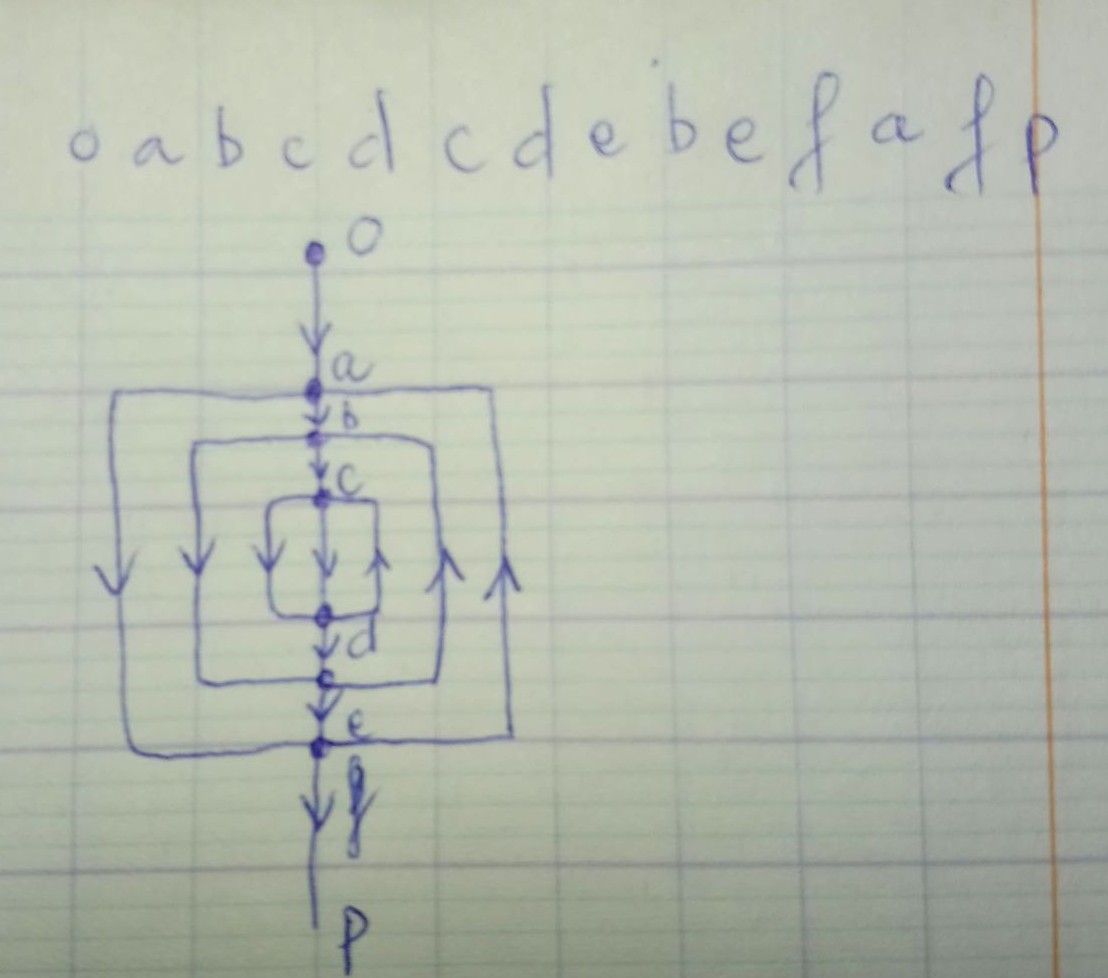 o a b c d c d e b e f a f p
O
a
b
c
d
e
f
p